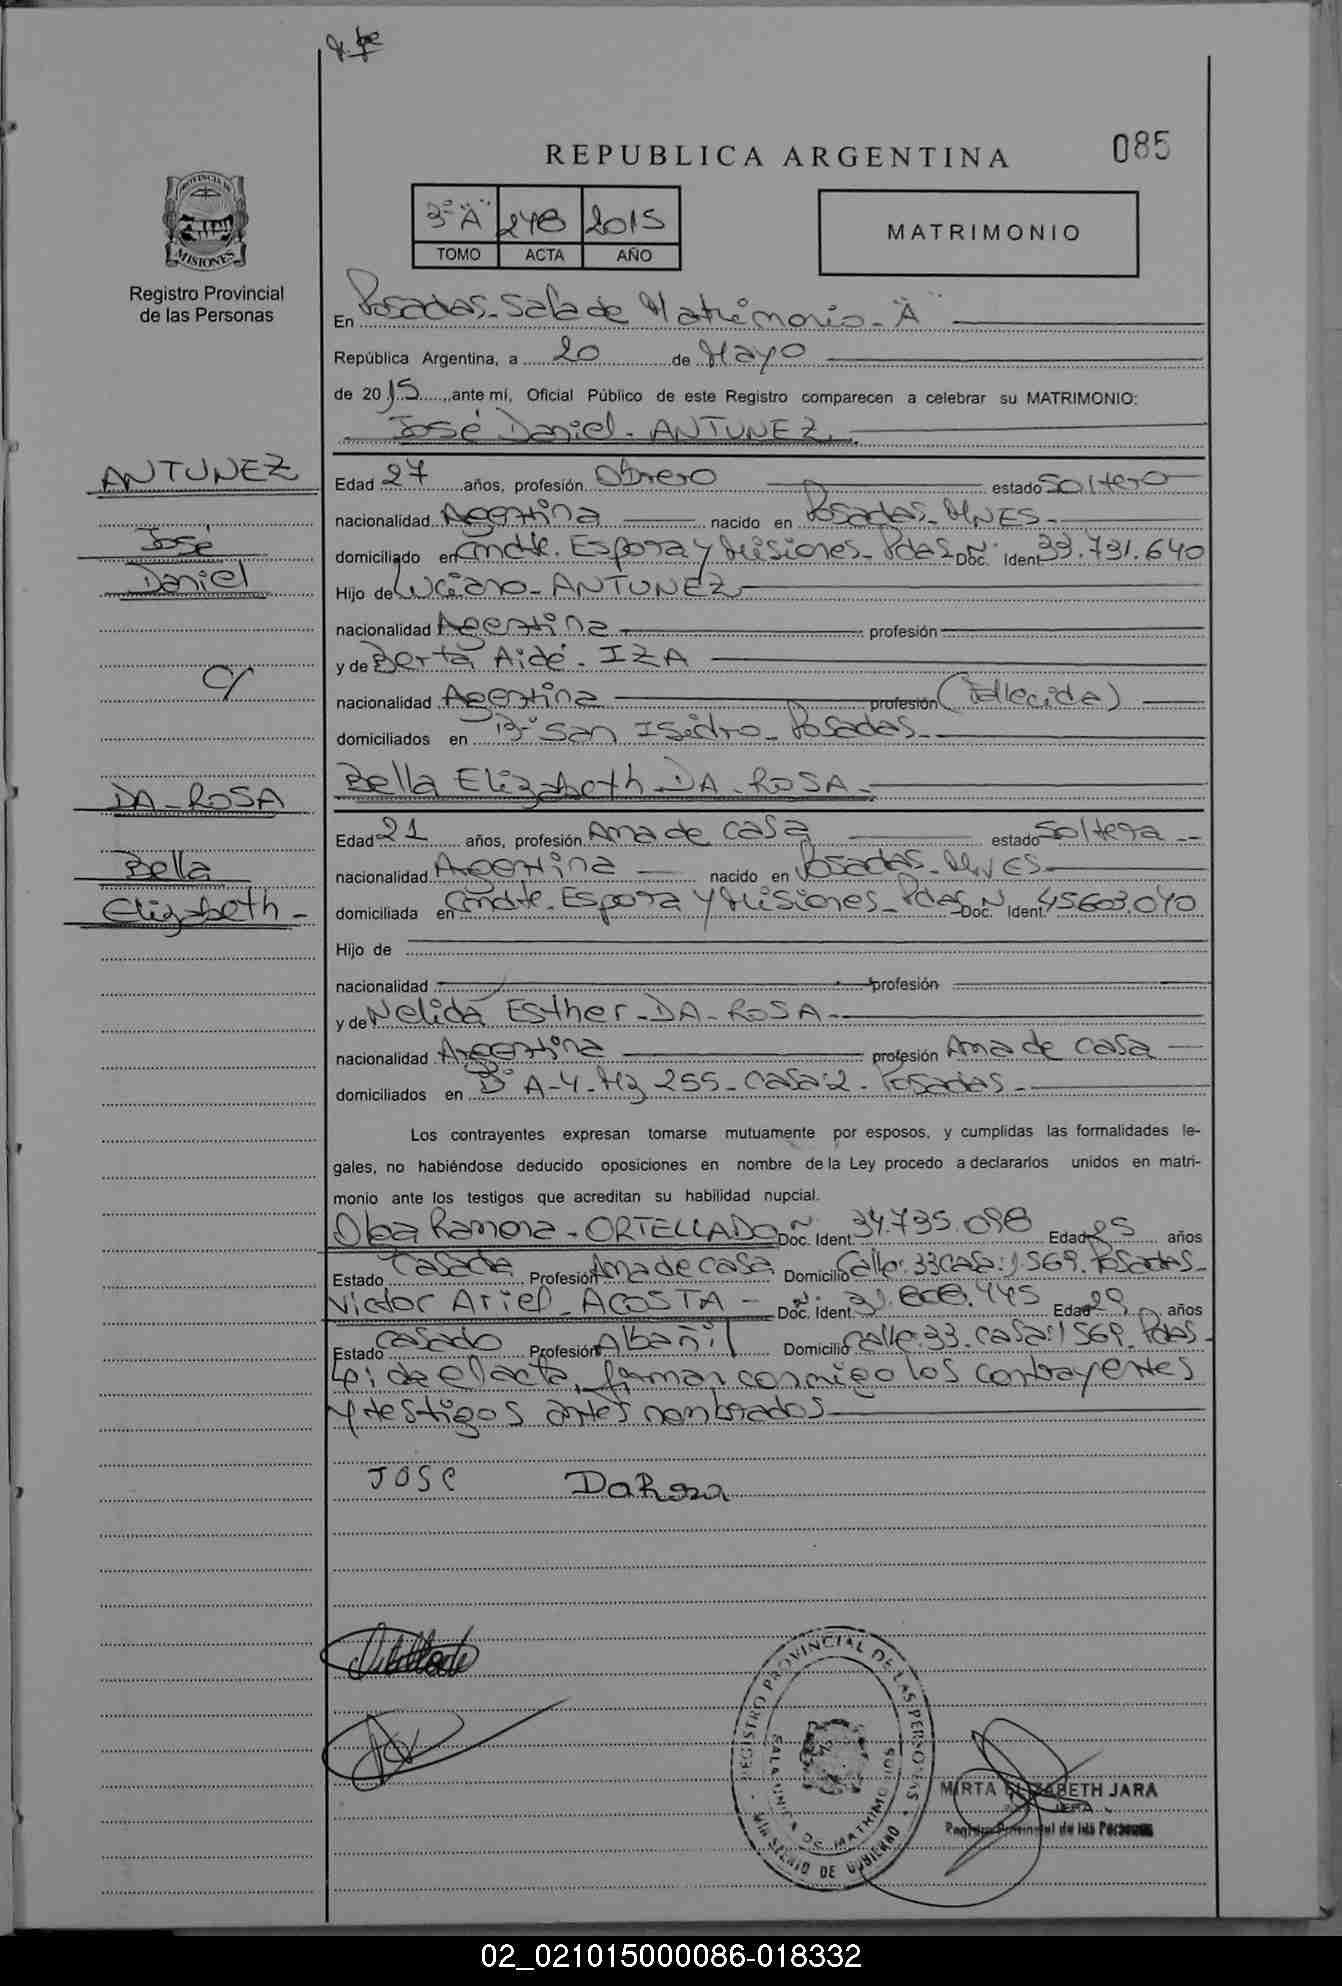 085
REPUBLICA ARGENTINA
3º "A" 248 2015
TOMO ACTA AÑO
MATRIMONIO
PROVINCIA DE
MISIONES
Registro Provincial
de las Personas
En Posadas - Sala de Matrimonio - "A"
República Argentina, a 20 de Mayo
de 2015, ante mí, Oficial Público de este Registro comparecen a celebrar su MATRIMONIO:
José Daniel - ANTUNEZ
ANTUNEZ
José
Daniel
c/
DA - ROSA
Bella
Elizabeth -
Edad 27 años, profesión Obrero estado Soltero
nacionalidad Argentina nacido en Posadas - MNES -
domiciliado en Cmdte. Espora y Misiones - Pdas Doc. Nº Ident 33.731.640
Hijo de Luciano - ANTUNEZ
nacionalidad Argentina profesión
y de Berta Aidé - IZA
nacionalidad Argentina profesión (Fallecida)
domiciliados en Bº San Isidro - Posadas -
Bella Elizabeth DA - ROSA -
Edad 21 años, profesión Ama de casa estado Soltera --
nacionalidad Argentina nacido en Posadas - MNES -
domiciliada en Cmdte. Espora y Misiones - Pdas Doc. Nº Ident. 45603.040
Hijo de
nacionalidad profesión
y de Nelida Esther - DA - ROSA -
nacionalidad Argentina profesión Ama de casa
domiciliados en Bº A-4 - Mz 255 - casa: 2 - Posadas -
Los contrayentes expresan tomarse mutuamente por esposos, y cumplidas las formalidades le-
gales, no habiéndose deducido oposiciones en nombre de la Ley procedo a declararlos unidos en matri-
monio ante los testigos que acreditan su habilidad nupcial.
Olga Ramona - ORTELLADO Doc. Nº Ident. 34.735.098 Edad 25 años
Estado Casada Profesión Ama de casa Domicilio Calle: 33 casa: 1569. Posadas -
Victor Ariel - ACOSTA - Doc. Nº Ident. Edad 29 años
Estado Casado Profesión Albañil Domicilio Calle: 33. casa: 1569. Pdas -
Leida el acta, firman conmigo los contrayentes
y testigos antes nombrados
JOSE DaRosa
REGISTRO PROVINCIAL DE LAS PERSONAS
SALA UNICA DE MATRIMONIOS
MINISTERIO DE GOBIERNO
MIRTA ELIZABETH JARA
Registro Provincial de las Personas
02_021015000086-018332